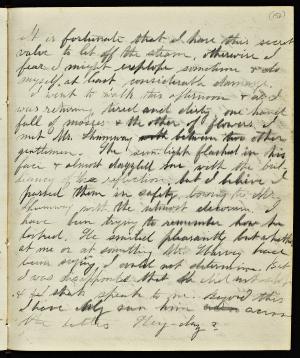 It is fortunate that I have this secret
valve to let off the steam, otherwise I
fear I might explode sometime & do
myself at least considerable damage.
I went to walk this afternoon & as I
was returning tired and dirty, one hand
full of mosses & the other of flowers I
met Mr. Shumway with between two other
gentlemen. The sun light flashed in his
face & almost dazzled me with the bril
iancy of the reflection, but I believe I
passed them in safety, bowing to Mr.
Shumway with the utmost decorum. I
have been trying to remember how he
looked. He smiled pleasantly but whether
at me or at something Mr. Harvey had
been saying I could not determine. But
I was disappointed that he did not
& speak to me. Beyond this
I have seen him across
the